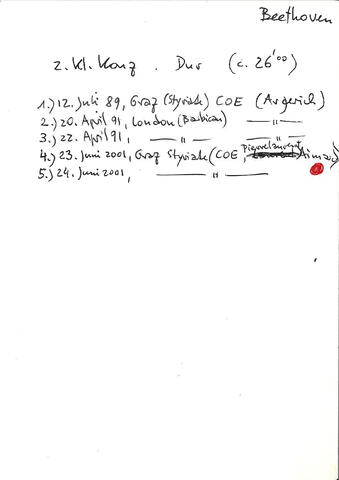 Beethoven
2. Kl. Konz. Dur (c. 26'00)
1.) 12. Juli 89, Graz (Styriale) COE (Argerich)
2.) 20. April 91, London (Barbican) —"—
3.) 22. April 91, —"— —"—
4.) 23. Juni 2001, Graz Styriale (COE, Pierre Laurent Aimard)
5.) 24. Juni 2001, —"—